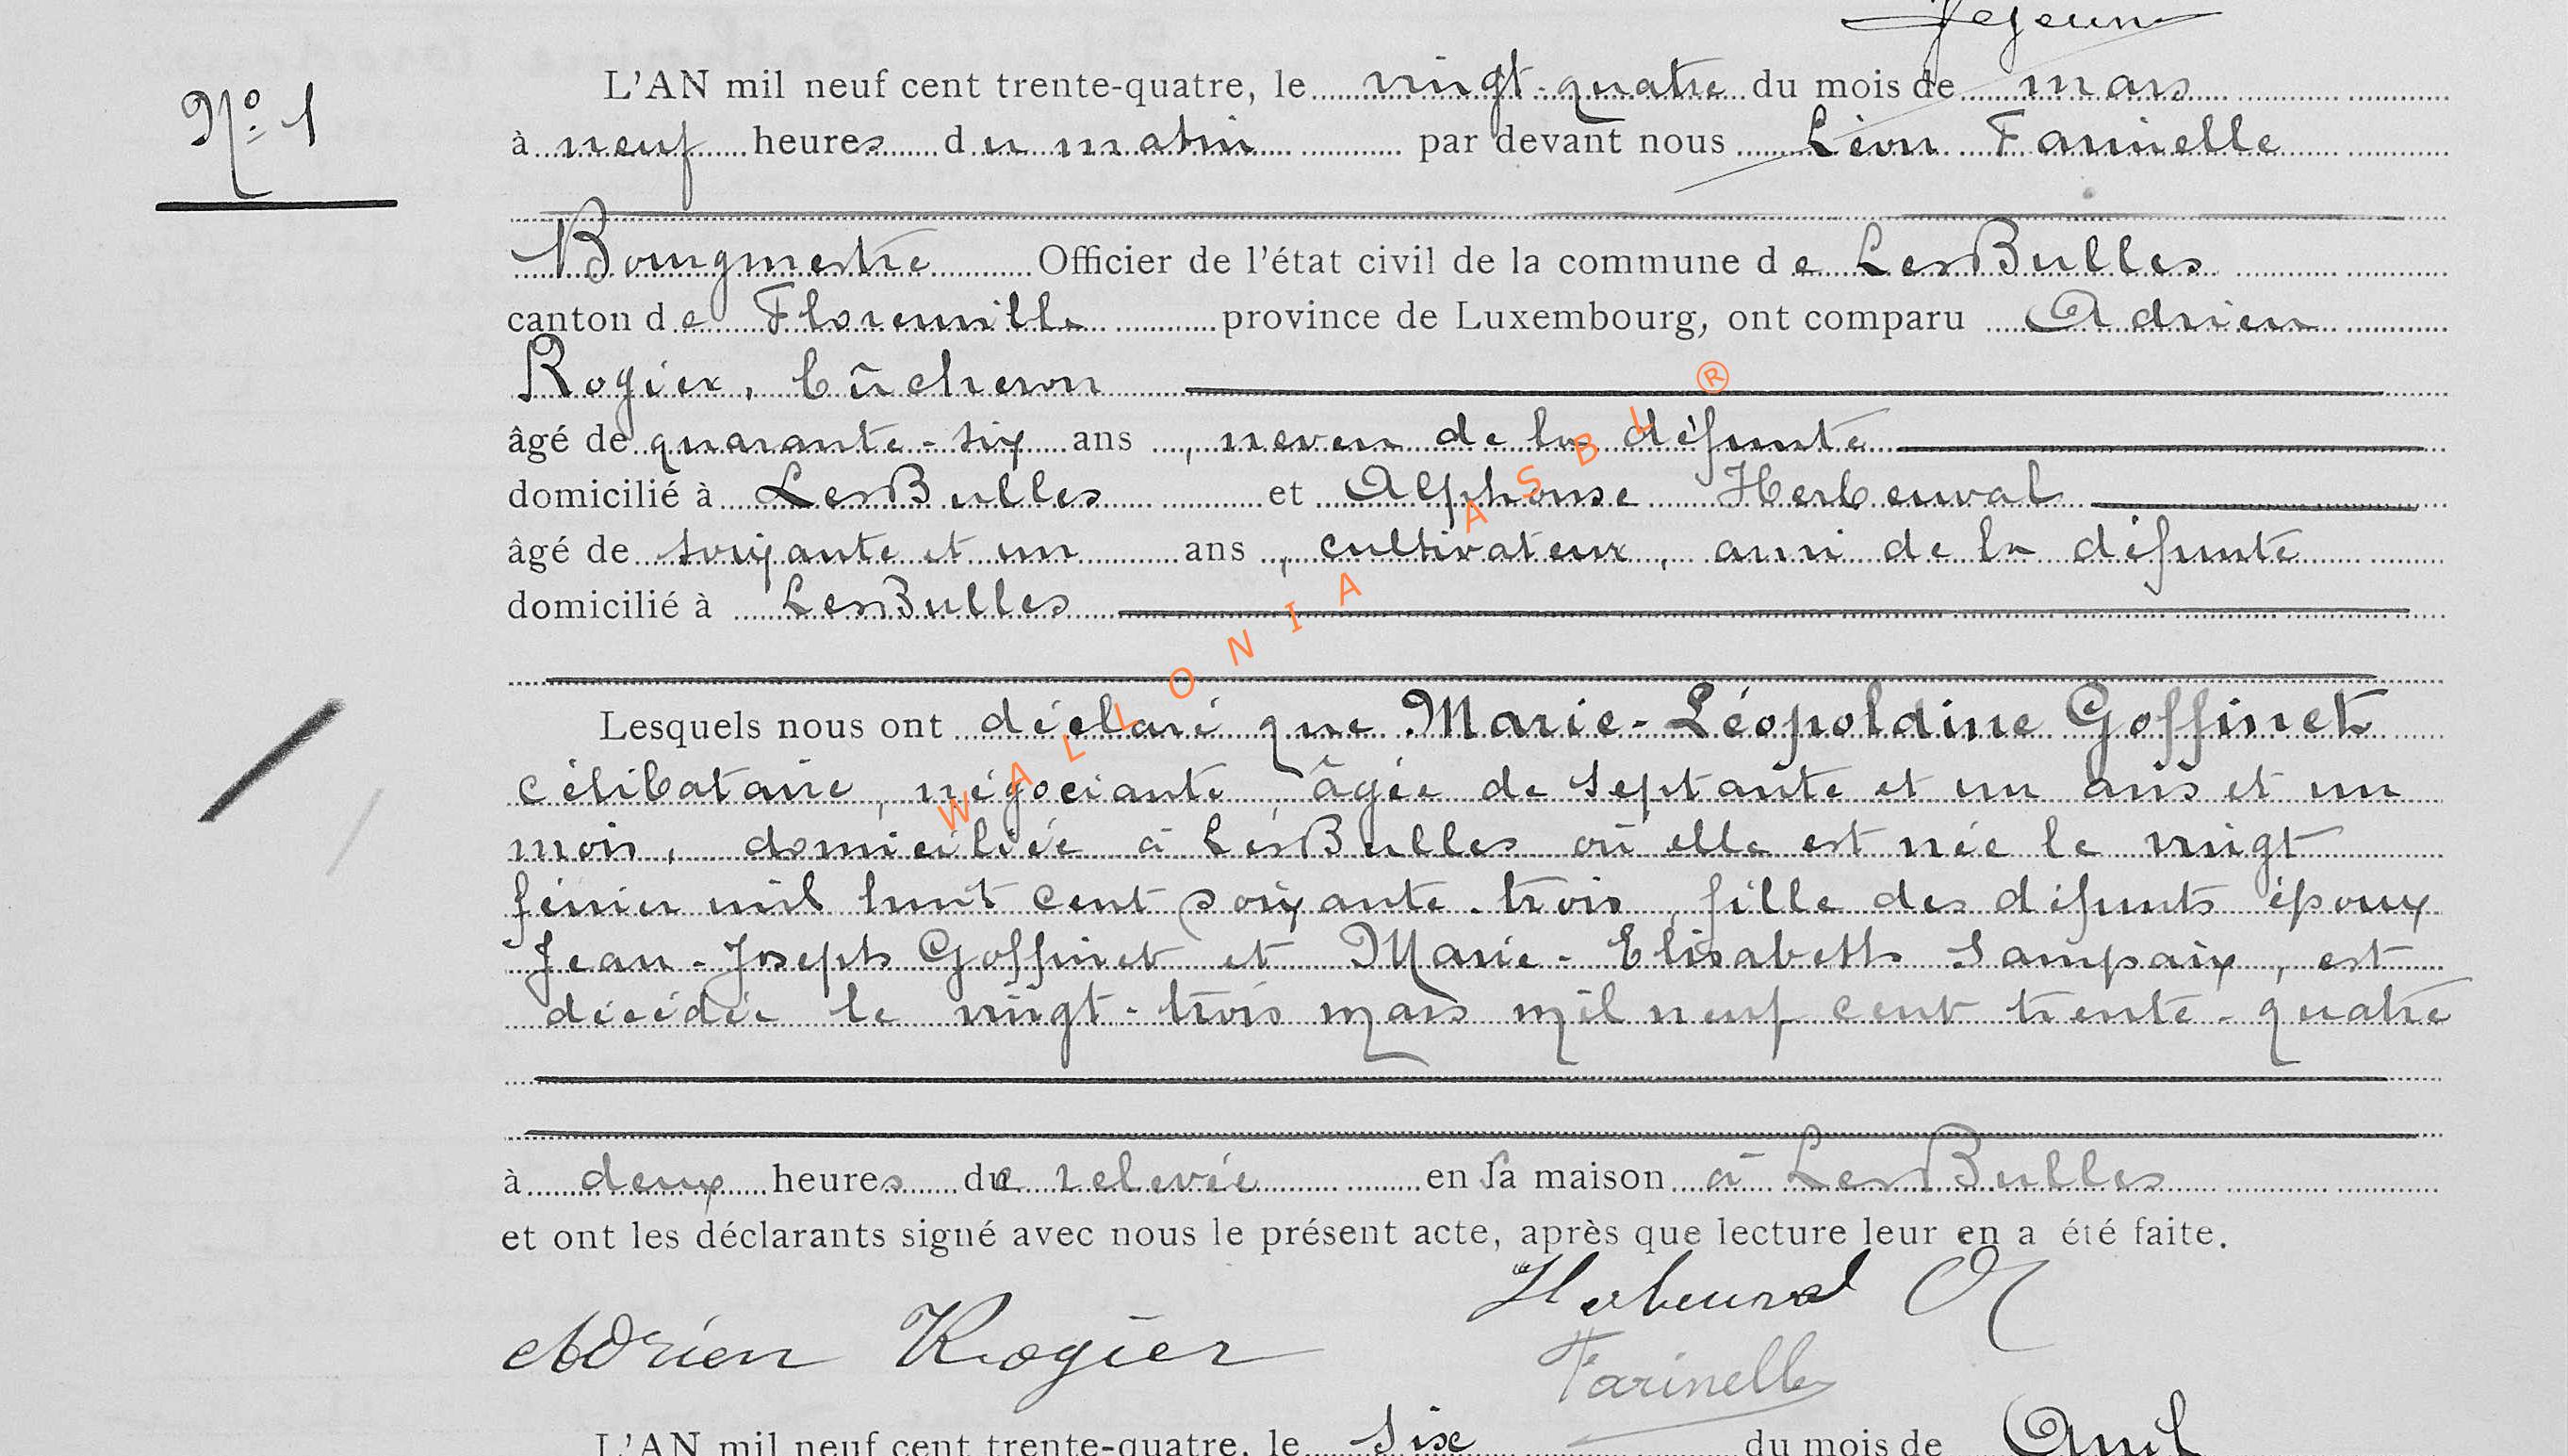 Jejeune
L'AN mil neuf cent trente-quatre, le vingt-quatre du mois de mars
Nº 1
à neuf heures du matin par devant nous Léon Farinelle
Bourgmestre Officier de l'état civil de la commune de LesBulles
canton de Florenville province de Luxembourg, ont comparu Adrien
Rogier, bûcheron
âgé de quarante-six ans , neveu de la défunte
domicilié à LesBulles et Alphonse Herbeuval
âgé de soixante et un ans , cultivateur, ami de la défunte
domicilié à LesBulles
Lesquels nous ont déclaré que Marie-Léopoldine Goffinet
célibataire, négociante, âgée de septante et un ans et un
mois, domiciliée à LesBulles où elle est née le vingt
février mil huit cent soixante-trois, fille des défunts époux
Jean-Joseph Goffinet et Marie-Elisabeth Sampaix, est
décédée le vingt-trois mars mil neuf cent trente-quatre
à deux heures de relevée en sa maison à LesBulles
et ont les déclarants signé avec nous le présent acte, après que lecture leur en a été faite.
Herbeuval A
Adrien Rogier
Farinelle
L'AN mil neuf cent trente-quatre, le six du mois de Avril
WALLONIA ASBL ®